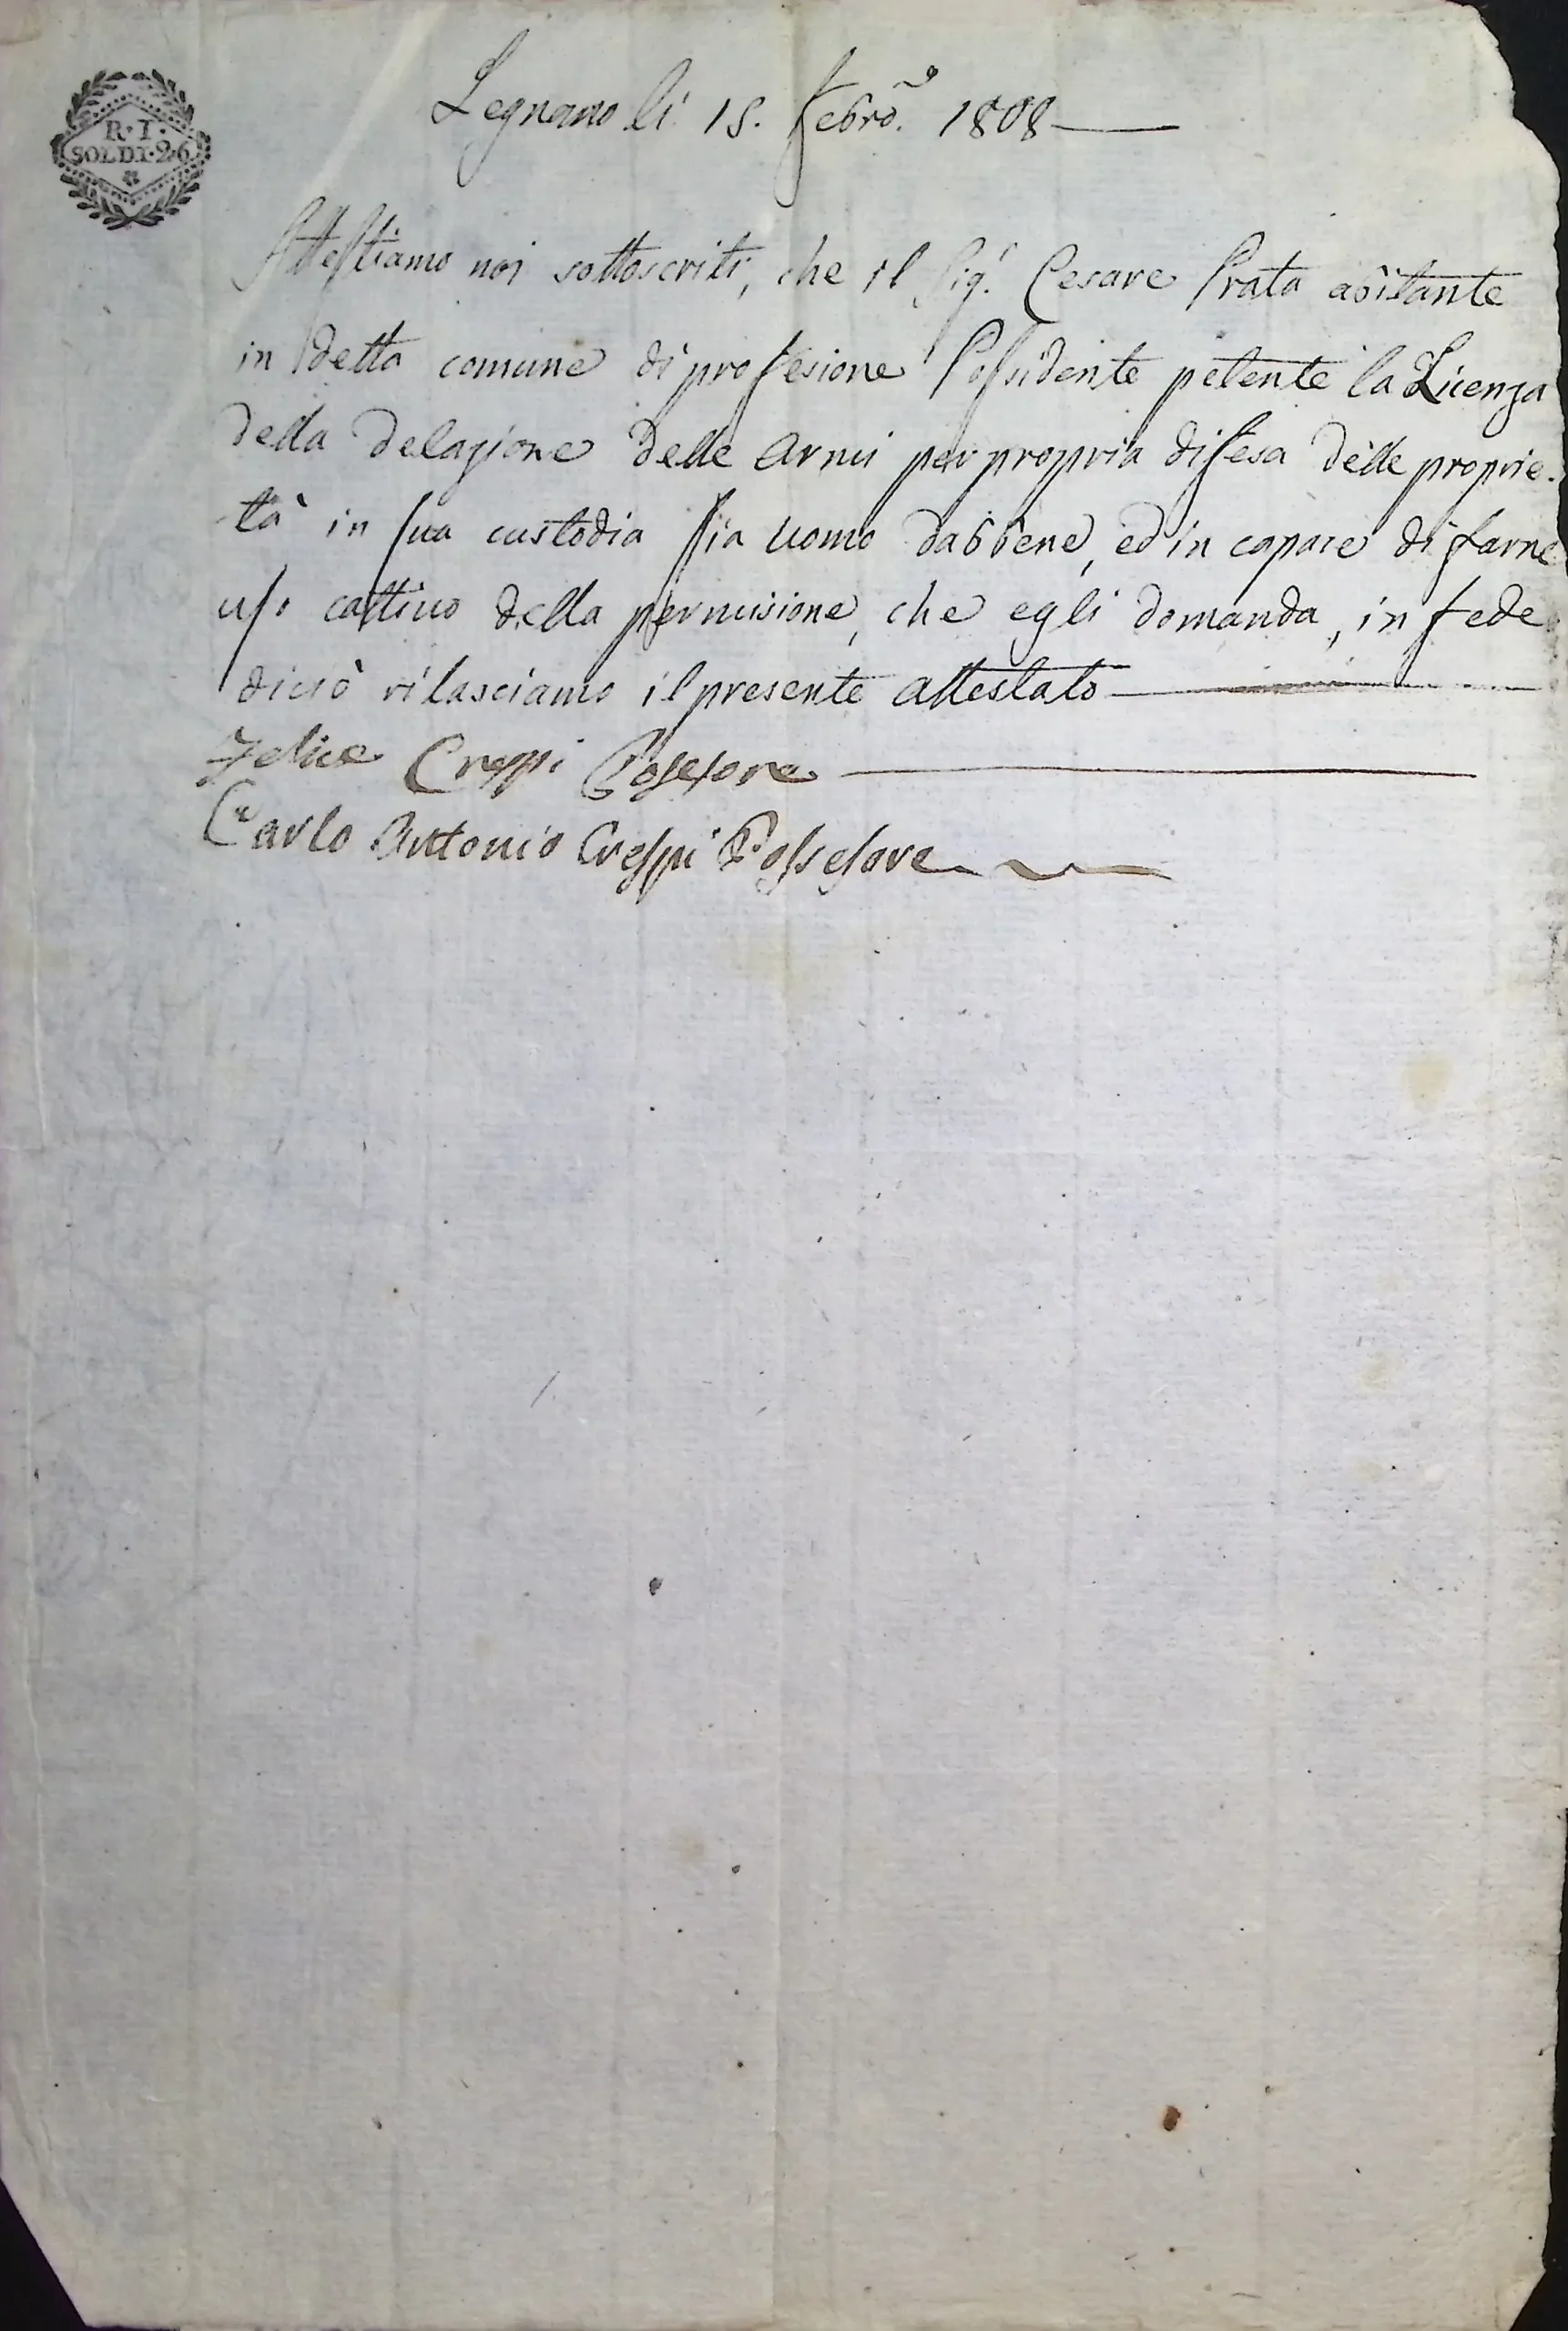 R. I.
SOLDI. 26
Legnano li 15. Febrõ. 1808
Attestiamo noi sottoscriti, che il Sig.r Cesare Prata abitante
in detto comune di profesione Possidente petente la Licenza
della delazione delle Armi per propria difesa delle proprie-
tà in sua custodia sia uomo dabbene, ed in capace di farne
uso cattivo della permisione, che egli domanda, in fede
di ciò rilasciamo il presente attestato
Felice Crespi Posesore
Carlo Antonio Crespi Possesore